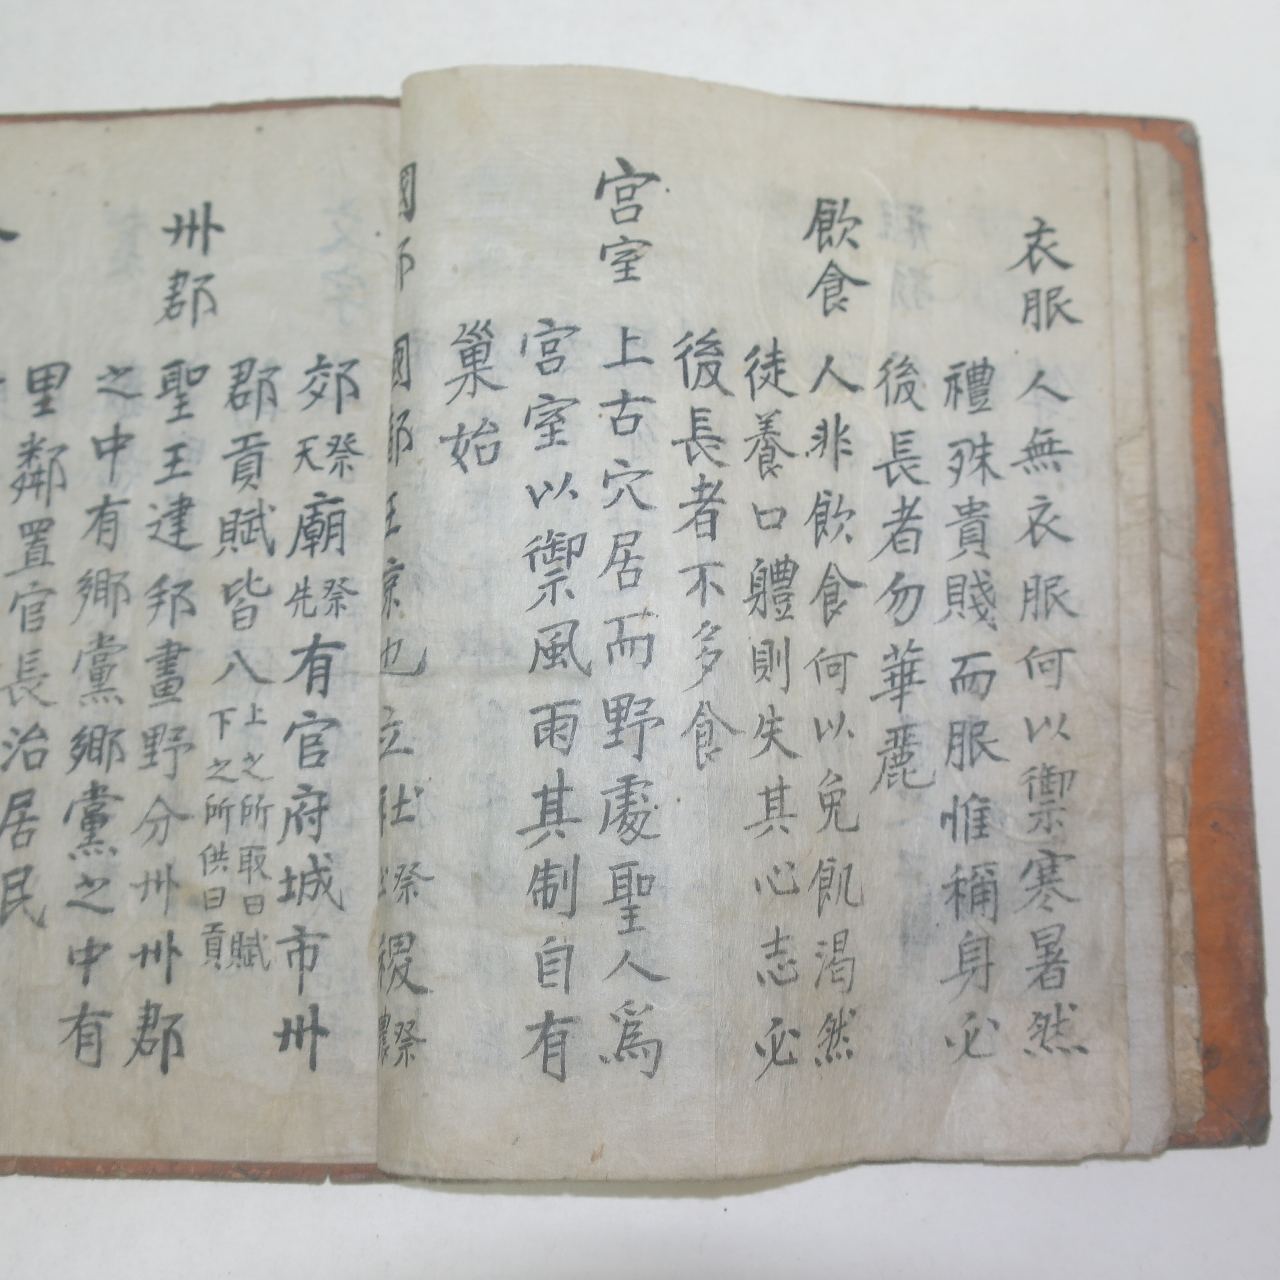 衣服 人無衣服何以御寒暑然
禮殊貴賤而服惟稱身必
後長者勿華麗
飮食 人非飮食何以免飢渴然
徒養口軆則失其心志必
後長者不多食
宮室 上古穴居而野處聖人爲
宮室以御風雨其制自有
巢始
國都 國都王京也立社祭稷祭農
郊祭天廟祭先有官府城市州
郡貢賦皆入上之所取曰賦下之所供曰貢
州郡 聖王建邦畫野分州州郡
之中有鄕黨鄕黨之中有
里鄰置官長治居民